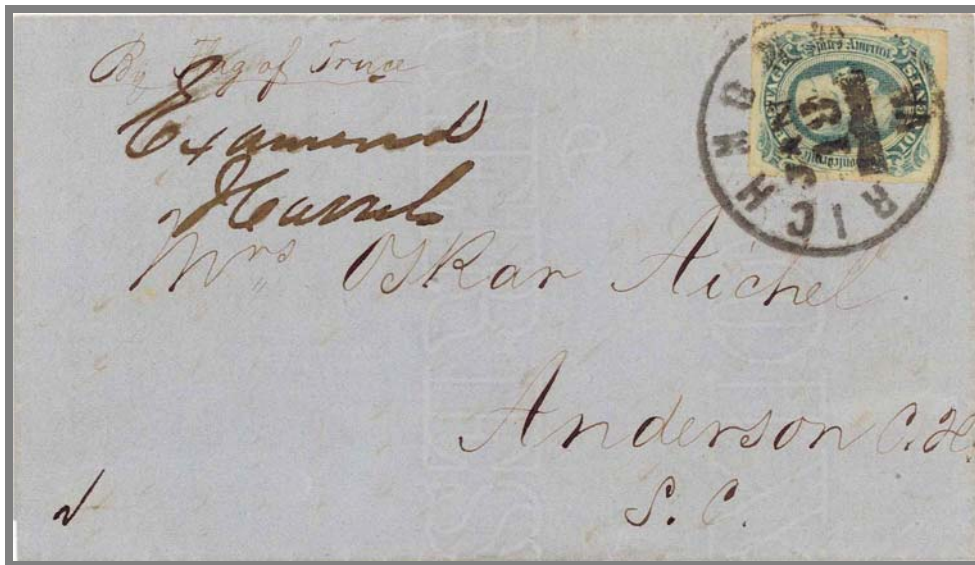 By Flag of Truce
Examined
Mrs Oskar Aichel
Anderson C. H.
S. C.
RICHMOND
JAN
18
POSTAGE
States America